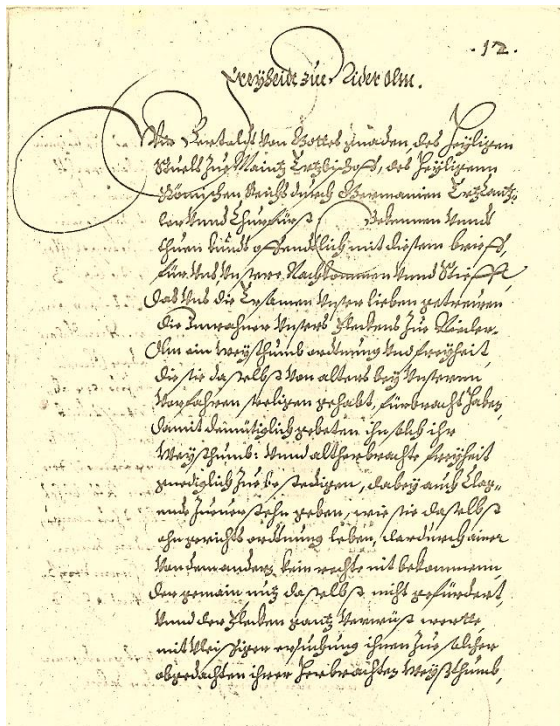 .12.
Freyheide zue Nider Olm.
Wir Bertoldt von Gottes gnaden des Heyligen
Stuels zue Maintz Ertzbischoff, des Heyligenn
Römischen Reichs durch Germanien Ertzcantz-
ler vnnd Churfürst Bekennen vnnd
thuen kundt offendtlich mit diesem brieff,
für vns vnsere Nachkommen vnnd Stiefft
das vns die Ersamen vnser lieben getreuen
die Innwohner vnsers fleckens zue Nieder-
Olm ein weysthumb ordtnung vnd freyheit,
die sie daselbst von alters bey vnsernn
vorfahren seligen gehabt, fürbracht haben,
damit demütiglich gebeten ihn solch ihr
Weysthumb: vnnd altherbrachte freyheit
gnediglich zue bestedigen, dabey auch Clag-
ende zuuerstehn geben, wie sie daselbst
ohn gerichts ordtnung leben, dardurch ainer
von dem andern kein rechte nit bekommenn,
der gemain nutz daselbst nicht gefürdert,
vnnd der flecken gantz verwüst werde
mit vleissiger ersuchung ihnen zue solcher
obgedachten ihrer herbrachten Weysthumb,